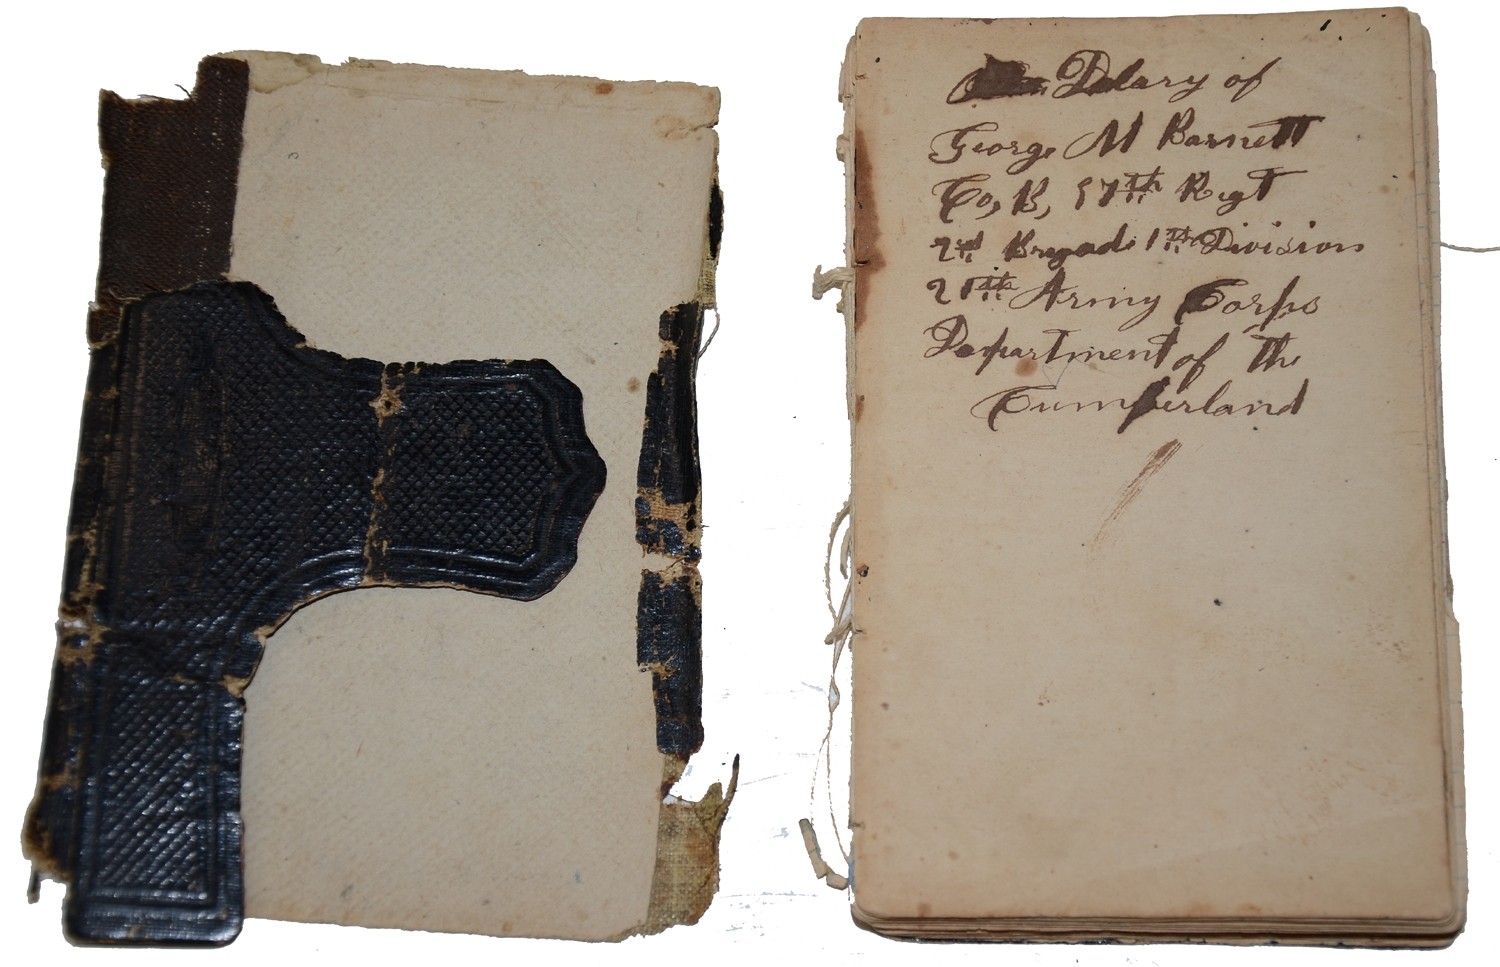 Diary of
George M Barnett
Co, B, 57th Regt
2nd Brigade 1st Division
21st Army Corps
Department of the
Cumberland